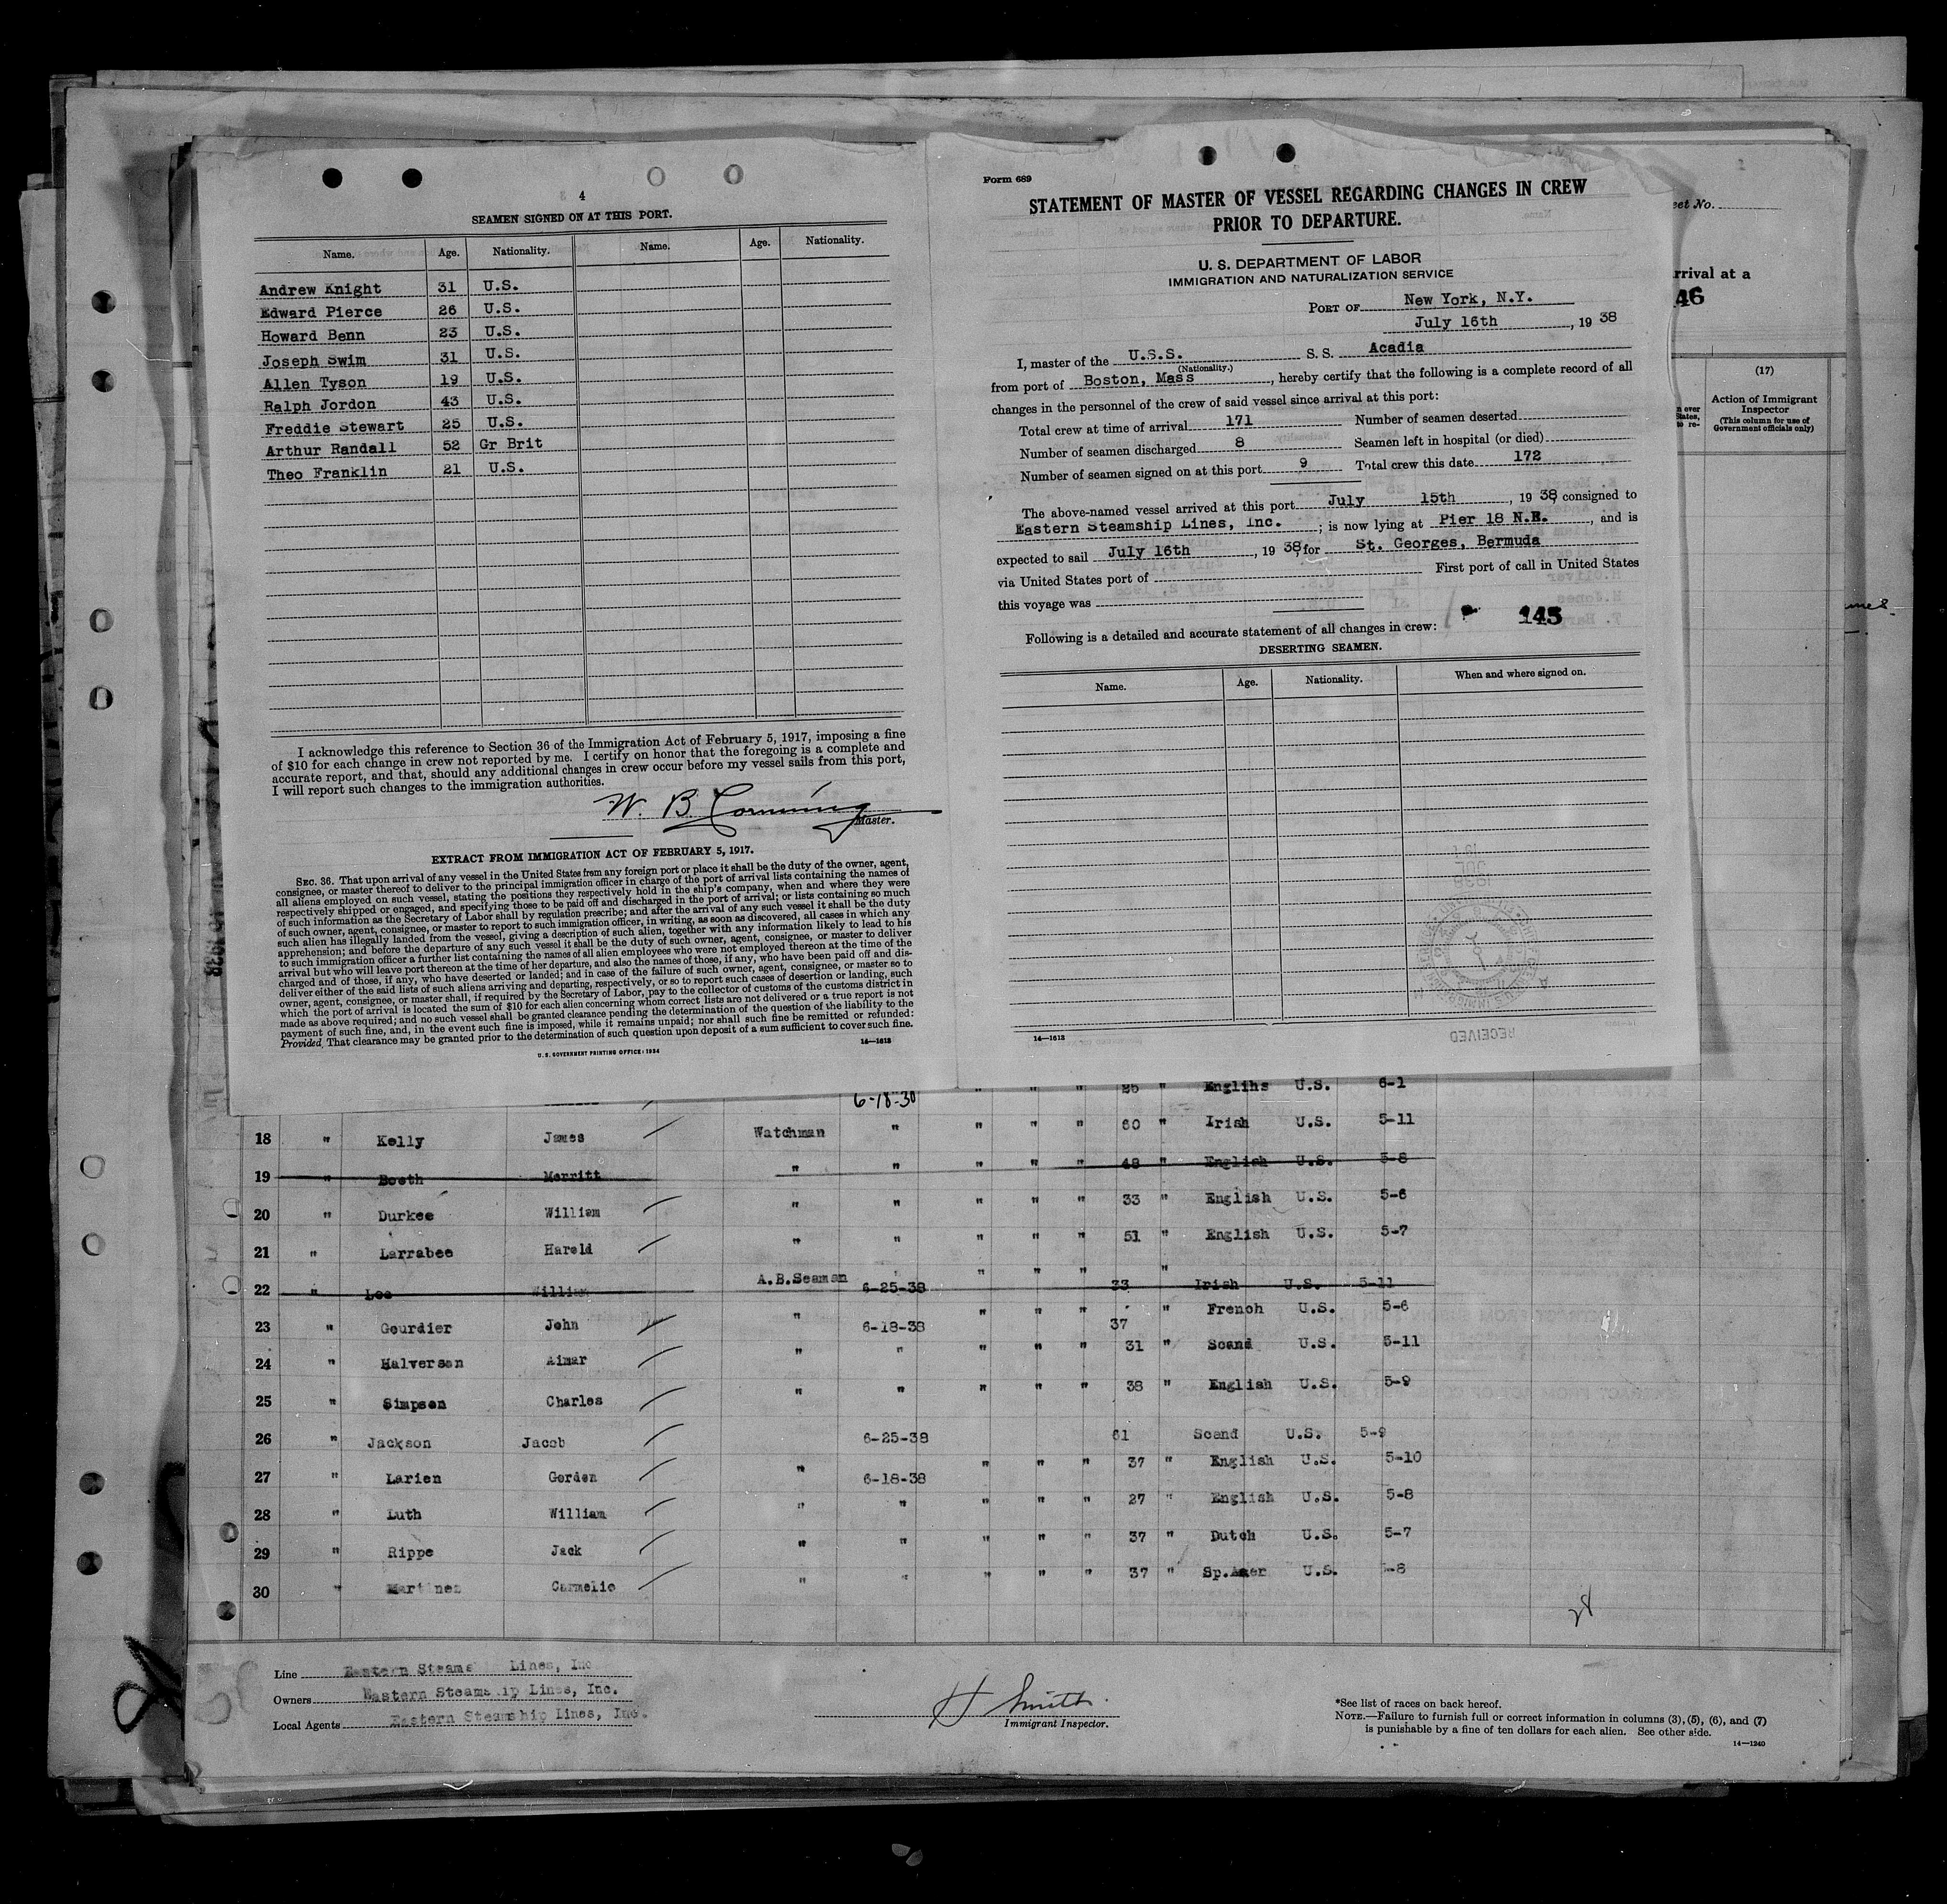 4
SEAMEN SIGNED ON AT THIS PORT.
Name. Age. Nationality. Name. Age. Nationality.
Andrew Knight 31 U.S.
Edward Pierce 26 U.S.
Howard Benn 23 U.S.
Joseph Swim 31 U.S.
Allen Tyson 19 U.S.
Ralph Jordon 43 U.S.
Freddie Stewart 25 U.S.
Arthur Randall 52 Gr Brit
Theo Franklin 21 U.S.
I acknowledge this reference to Section 36 of the Immigration Act of February 5, 1917, imposing a fine
of $10 for each change in crew not reported by me. I certify on honor that the foregoing is a complete and
accurate report, and that, should any additional changes in crew occur before my vessel sails from this port,
I will report such changes to the immigration authorities.
W. B. Corning
Master.
EXTRACT FROM IMMIGRATION ACT OF FEBRUARY 5, 1917.
SEC. 36. That upon arrival of any vessel in the United States from any foreign port or place it shall be the duty of the owner, agent,
consignee, or master thereof to deliver to the principal immigration officer in charge of the port of arrival lists containing the names of
all aliens employed on such vessel, stating the positions they respectively hold in the ship's company, when and where they were
respectively shipped or engaged, and specifying those to be paid off and discharged in the port of arrival; or lists containing so much
of such information as the Secretary of Labor shall by regulation prescribe; and after the arrival of any such vessel it shall be the duty
of such owner, agent, consignee, or master to report to such immigration officer, in writing, as soon as discovered, all cases in which any
such alien has illegally landed from the vessel, giving a description of such alien, together with any information likely to lead to his
apprehension; and before the departure of any such vessel it shall be the duty of such owner, agent, consignee, or master to deliver
to such immigration officer a further list containing the names of all alien employees who were not employed thereon at the time of the
arrival but who will leave port thereon at the time of her departure, and also the names of those, if any, who have been paid off and dis-
charged and of those, if any, who have deserted or landed; and in case of the failure of such owner, agent, consignee, or master so to
deliver either of the said lists of such aliens arriving and departing, respectively, or so to report such cases of desertion or landing, such
owner, agent, consignee, or master shall, if required by the Secretary of Labor, pay to the collector of customs of the customs district in
which the port of arrival is located the sum of $10 for each alien concerning whom correct lists are not delivered or a true report is not
made as above required; and no such vessel shall be granted clearance pending the determination of the question of the liability to the
payment of such fine, and, in the event such fine is imposed, while it remains unpaid; nor shall such fine be remitted or refunded:
Provided, That clearance may be granted prior to the determination of such question upon deposit of a sum sufficient to cover such fine.
U. S. GOVERNMENT PRINTING OFFICE: 1934 14—1613
Form 689
STATEMENT OF MASTER OF VESSEL REGARDING CHANGES IN CREW
PRIOR TO DEPARTURE.
U. S. DEPARTMENT OF LABOR
IMMIGRATION AND NATURALIZATION SERVICE
PORT OF New York, N.Y.
July 16th, 1938
I, master of the U.S.S. S. S. Acadia
(Nationality.)
from port of Boston, Mass, hereby certify that the following is a complete record of all
changes in the personnel of the crew of said vessel since arrival at this port:
Total crew at time of arrival 171 Number of seamen deserted
Number of seamen discharged 8 Seamen left in hospital (or died)
Number of seamen signed on at this port 9 Total crew this date 172
The above-named vessel arrived at this port July 15th, 1938, consigned to
Eastern Steamship Lines, Inc.; is now lying at Pier 18 N.R., and is
expected to sail July 16th, 1938, for St. Georges, Bermuda
via United States port of First port of call in United States
this voyage was
145
Following is a detailed and accurate statement of all changes in crew:
DESERTING SEAMEN.
Name. Age. Nationality. When and where signed on.
14—1613
RECEIVED
eet No.
rrival at a
46
(17)
Action of Immigrant
Inspector
(This column for use of
Government officials only)
6-18-38 " " " 25 " Englihs U.S. 6-1
18 " Kelly James Watchman " " " " 60 " Irish U.S. 5-11
19 " Booth Merritt " " " " " 48 " English U.S. 5-8
20 " Durkee William " " " " " 33 " English U.S. 5-6
21 " Larrabee Harold " " " " " 51 " English U.S. 5-7
22 " Lee William A.B.Seaman 6-25-38 " " " 33 " Irish U.S. 5-11
23 " Gourdier John " 6-18-38 " " " 37 " French U.S. 5-6
24 " Halverson Aimar " " " " " 31 " Scand U.S. 5-11
25 " Simpson Charles " " " " " 38 " English U.S. 5-9
26 " Jackson Jacob 6-25-38 61 Scand U.S. 5-9
27 " Larien Gorden " 6-18-38 " " " 37 " English U.S. 5-10
28 " Luth William " " " " " 27 " English U.S. 5-8
29 " Rippe Jack " " " " " 37 " Dutch U.S. 5-7
30 " Martinez Carmelio " " " " " 37 " Sp.Amer U.S. 5-8
28
Line Eastern Steamship Lines, Inc
Owners Eastern Steamship Lines, Inc.
Local Agents Eastern Steamship Lines, Inc.
H Smith
Immigrant Inspector.
*See list of races on back hereof.
NOTE.—Failure to furnish full or correct information in columns (3), (5), (6), and (7)
is punishable by a fine of ten dollars for each alien. See other side.
14—1240